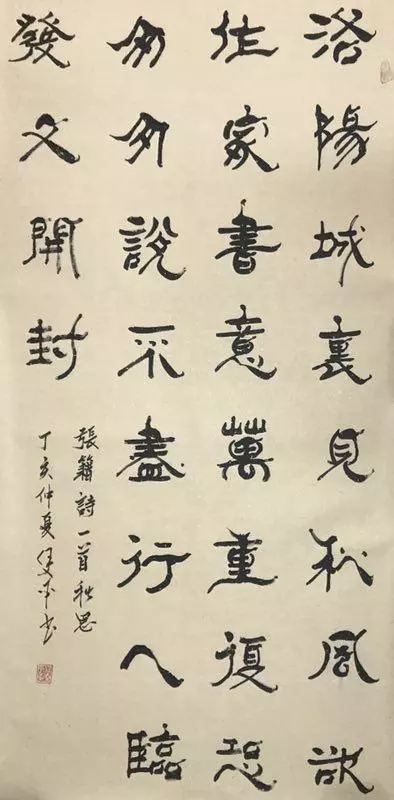 洛陽城裏見秋風欲
作家書意萬重復恐
匆匆說不盡行人臨
發又開封
張籍詩一首秋思
丁亥仲夏書